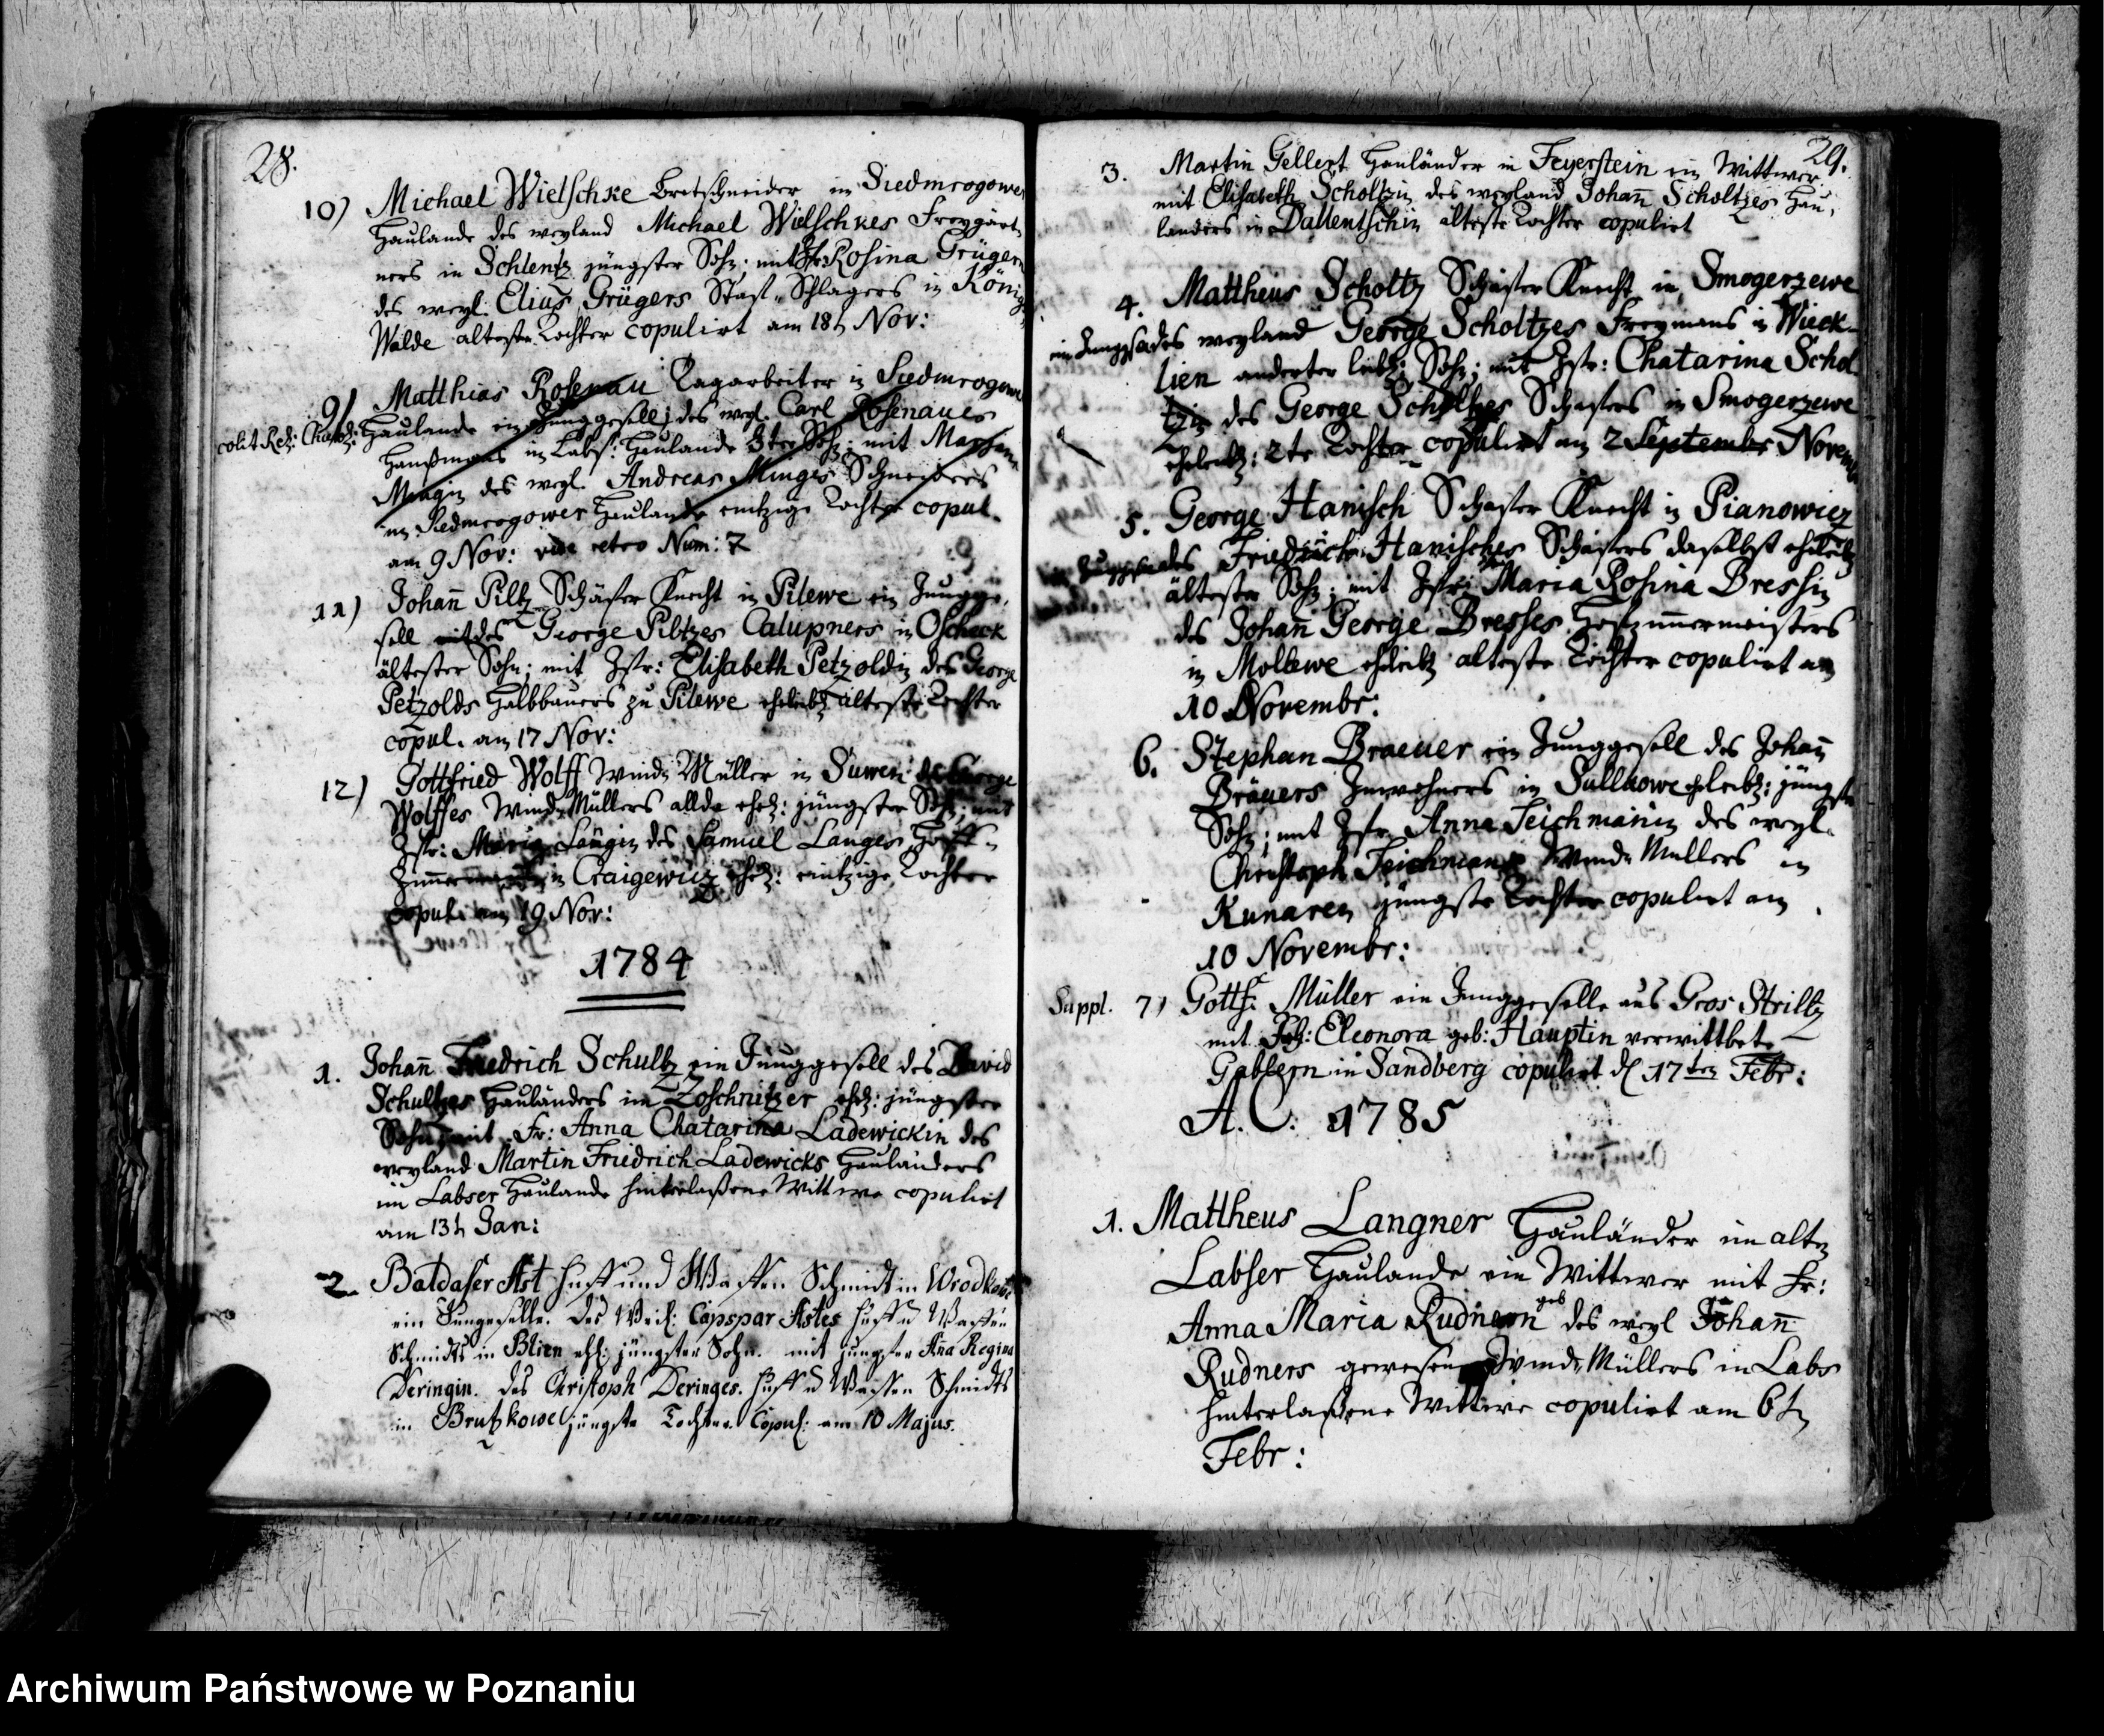 28.
10) Michael Wielschke Bretschneider im Siedmrogower
Haulande des weyland Michael Wielschkes Freygärt-
ners in Schlentz jüngster Sohn; mit Rosina Grügern
des weyl. Elias Grügers Schlagers in König
Walde älteste Tochter copulirt am 18t Nov:
9) Matthias Rosenau Tagarbeiter in Siedmrogower
Haulande ein Junggesell; des weyl. Carl Rosenaues
colit Rel:
im Labs: Haulande 3ter Sohn; mit
Mingin des weyl. Andreas Minges Schneiders
im Siedmrogower Haulande eintzige Tochter copul.
am 9 Nov: vide retro Num: 7
11) Johan̄ Piltz Schäfer Knecht in Pilewe ein Jungge-
sell des George Piltzes Calupners in Oscheck
ältester Sohn; mit Jfr: Elisabeth Petzoldin des George
Petzolds Halbbauers zu Pilewe eheleibl älteste Tochter
copul. am 17 Nov:
12) Gottfried Wolff Wind Müller in Suweri des George
Wolffes Wind Müllers allda ehel: jüngster Sohn; mit
Jfr: Maria Langin des Samuel Langes Hoff-
in Craigewicz ehel: eintzige Tochter
copul: am 19 Nov:
1784
1. Johan̄ Friedrich Schultz ein Junggesell des David
Schultzes Hauländers im Zoschnitzer ehel: jüngster
Sohn mit Fr: Anna Chatarina Ladewickin des
weyland Martin Friedrich Ladewicks Hauländers
im Labser Haulande hinterlaßene Wittwe copulirt
am 13t Jan:
2. Baldaser Ast Huff und Waffen Schmidt in Wrodkowe
ein Jungeselle. des Weil: Capspar Astes Huff u Waffen
Schmidts in Blien ehl: jüngster Sohn. mit jungfer Ana Regina
Deringin. des Christoph Deringes. Huff u Waffen Schmidts
in Brutzkowe jüngste Tochter. Copul: am 10 Majus.
29.
3. Martin Gellert Hauländer in Feyerstein ein Wittwer
mit Elisabeth Scholtzin des weyland Johan̄ Scholtzes Hau-
länders in Dallentschin älteste Tochter copulirt
4. Mattheus Scholtz Schäfer Knecht in Smogerzewe
ein Junggsell des weyland George Scholtzes Freymans in Wieck-
lien anderter leibl: Sohn; mit Jfr: Chatarina Schol-
tzin des George Scholtzes Schäfers in Smogerzewe
eheleibl: 2te Tochter copulirt am 2 September Novemb
5. George Hanisch Schäfer Knecht in Pianowicz
des Friedrich Hanisches Schäfers daselbst eheleibl
ältester Sohn; mit Jfr: Maria Rosina Bressin
des Johan̄ George Bresses Hofzim̄ermeisters
in Mollewe eheleibl älteste Tochter copulirt am
10 Novembr:
6. Stephan Braeuer ein Junggesell des Johan̄
Bräuers Inwohners in Sullkowe eheleibl: jüngster
Sohn; mit Jfr Anna Teichmānin des weyl.
Christoph Teichmans Wind Müllers in
Kunaren jüngste Tochter copulirt am
10 Novembr:
Suppl. 7) Gottfr: Müller ein Junggeselle aus Gros Striltz
mit Eleonora geb: Hauptin verwittbete
Gablern in Sandberg copulirt d 17ten Febr:
A. C: 1785
1. Mattheus Langner Hauländer im alten
Labser Haulande ein Wittwer mit Fr:
Anna Maria Rudnern geb des weyl Johan̄
Rudners gewesenen Wind Müllers in Labs
hinterlaßene Wittwe copulirt am 6t
Febr:
Archiwum Państwowe w Poznaniu